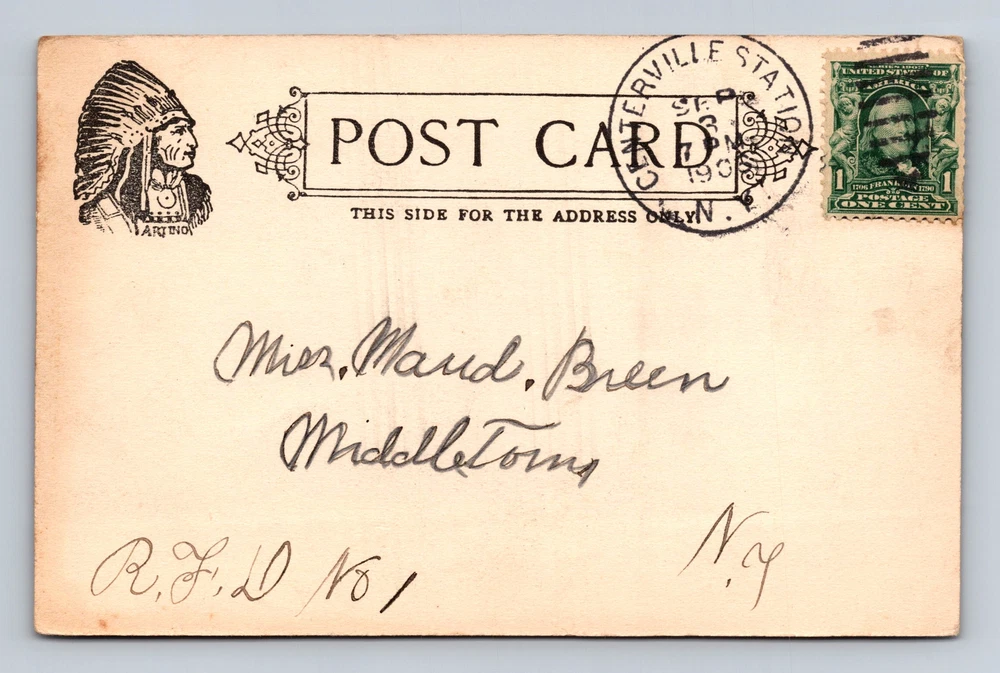 ARTINO
POST CARD
THIS SIDE FOR THE ADDRESS ONLY
CENTERVILLE STATION
SEP
3
7 PM
N.Y.
SERIES 1902
UNITED STATES OF
AMERICA
1 1
1706 FRANKLIN 1790
POSTAGE
ONE CENT
Miss. Maud. Breen
Middletown
N.Y
R.F.D No 1